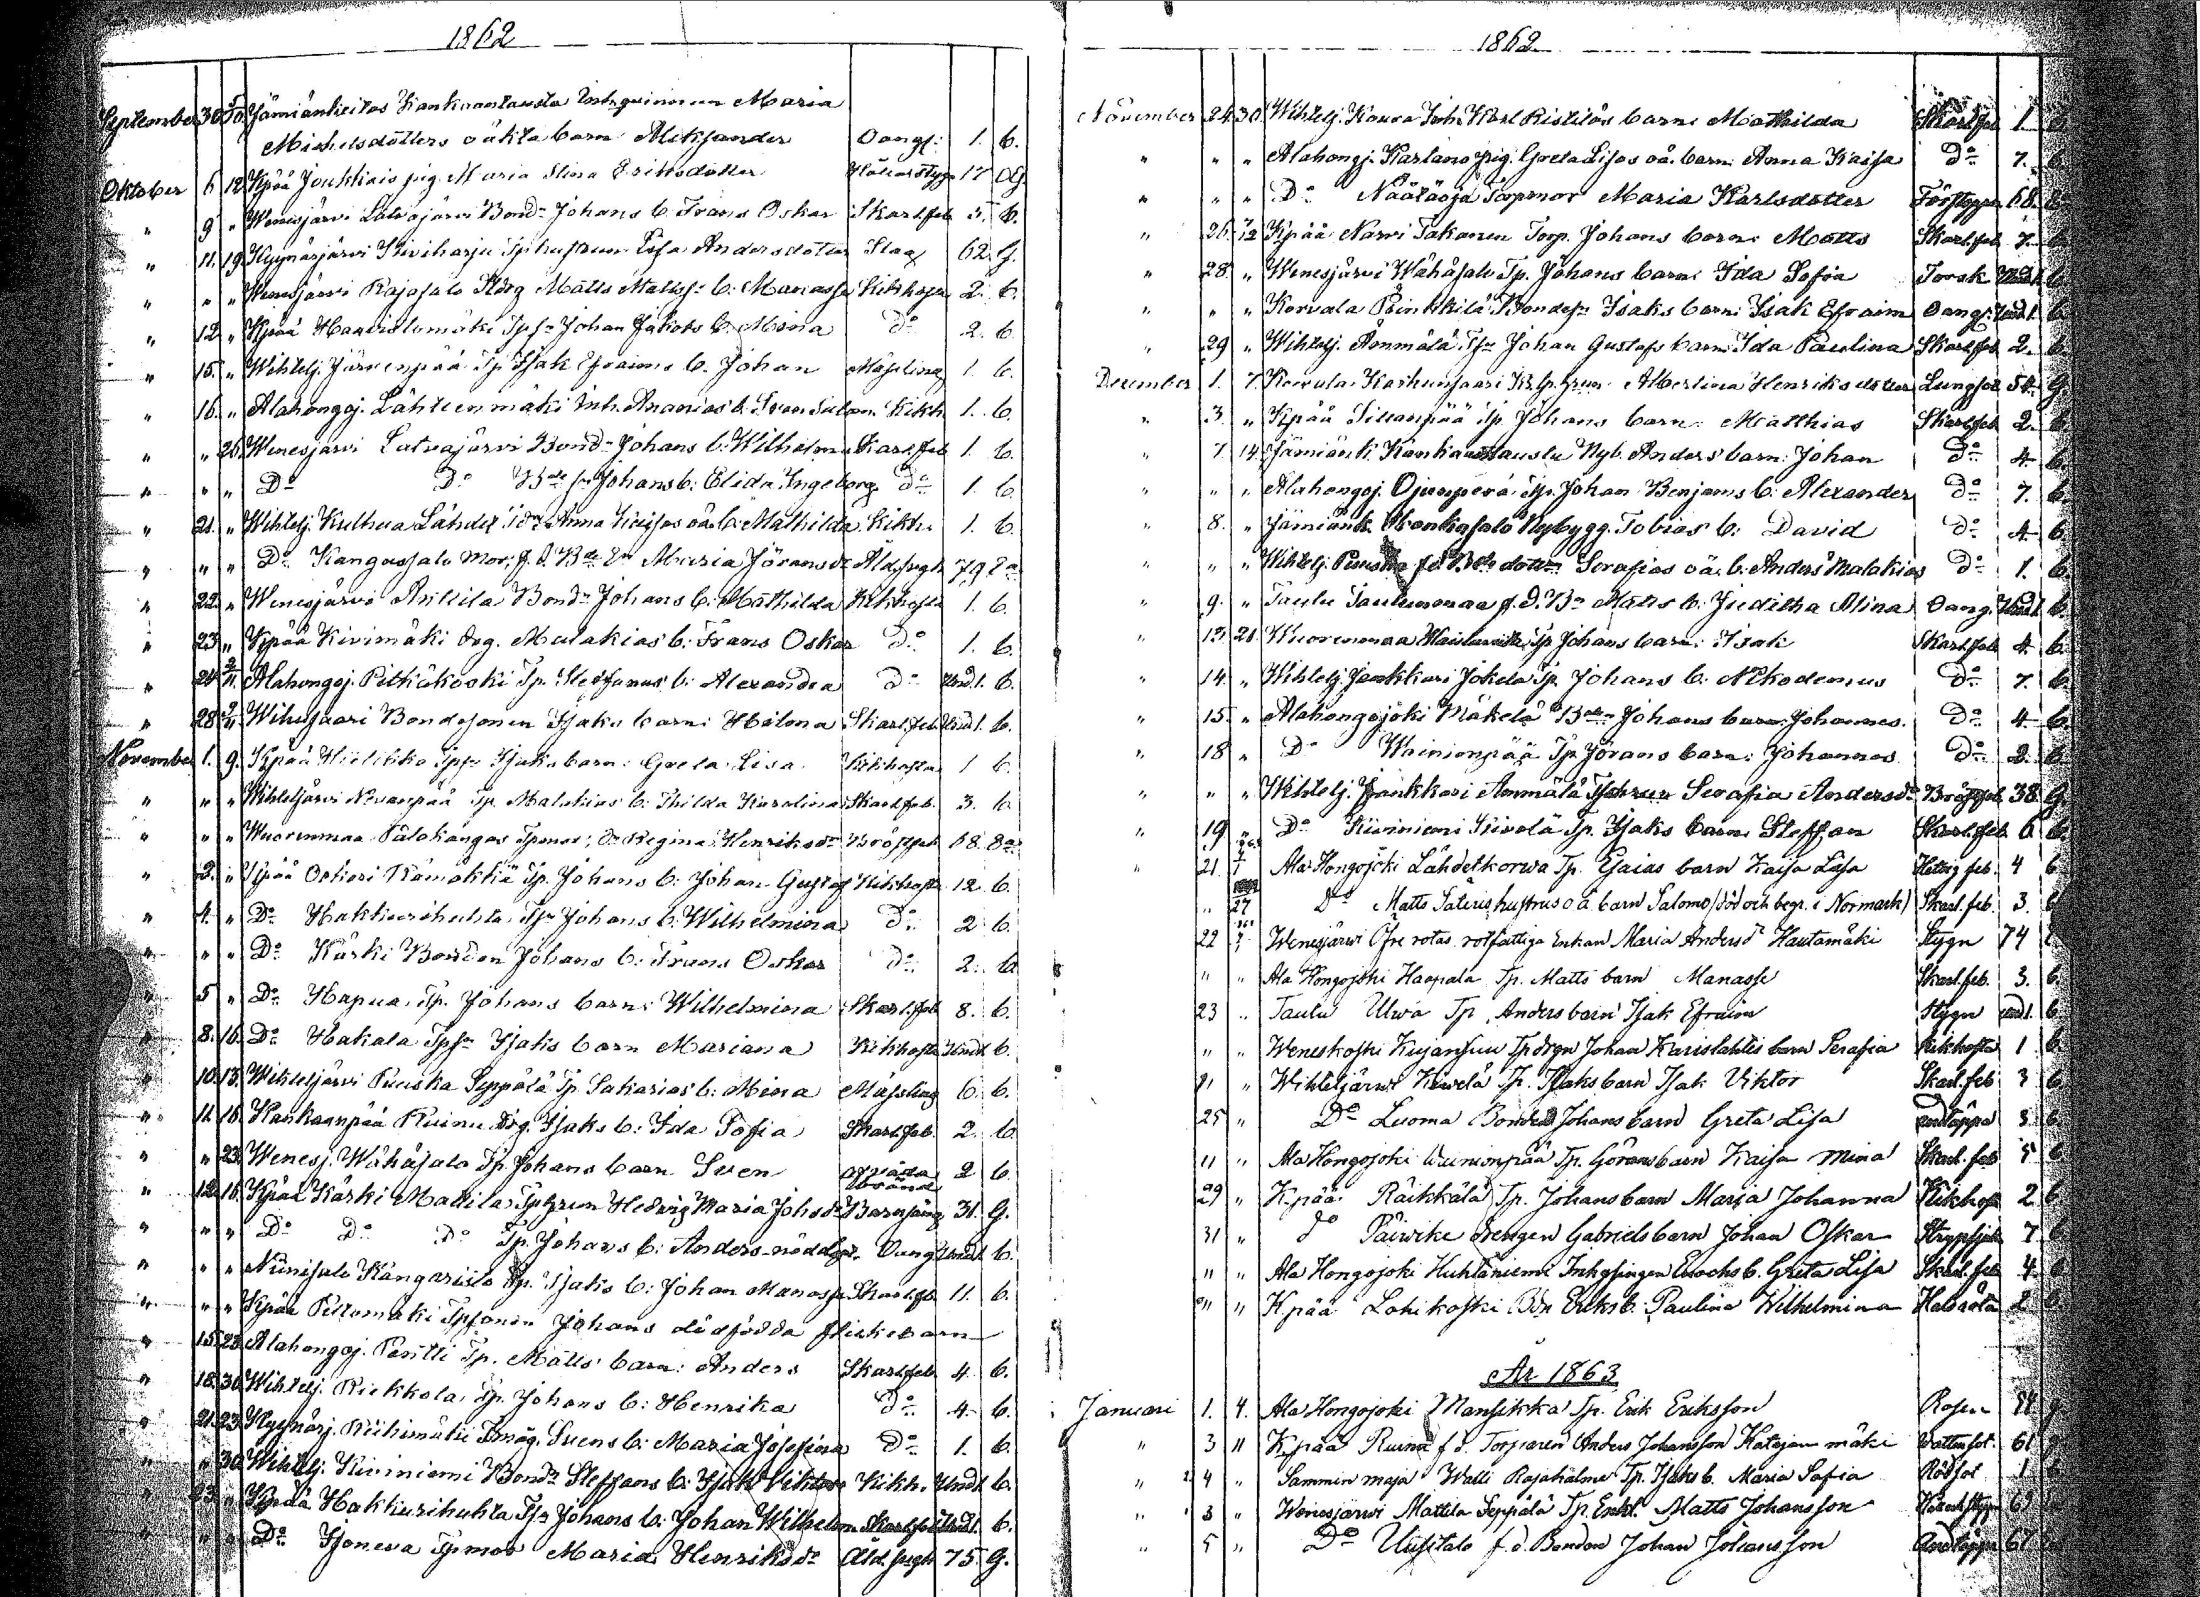 1862
September 30 5/10 Jämiänkeitas Kankaantausta Inh.qvinnan Maria
Michelsdotters oäkta barn Aleksander Oangf. 1. b.
Oktober 6 12 Kpää Joukkais pig. Maria Stina Eriksdotter Håll o. Stygn 17 OG.
" 9 " Wenesjärvi Latvajärvi Bond. Johans b. Frans Oskar Skarl.feb 5. b.
" 11. 19 Kyynärjärvi Kiviharju Tp hustrun Lisa Andersdotter Slag 62 G.
" " " Wenesjärvi Rajasalo Hdrg Matts Mattss. b. Manasse Kikhosta 2. b.
" 12 " Kpää Harvialamäki Tpsn Johan Jakobs b. Mina do 2. b.
" 15. " Wihtelj. Järvenpää Tp Isak Efraims b. Johan Mässling 1. b.
" 16. " Alahongoj. Lähteenmäki Inh. Ananias b. Ivan Kikh. 1. b.
" " 26. Wenesjärvi Latvajärvi Bond. Johans b. Wilhelm Skarl.feb 1. b.
" " " Do Do Bde sn Johans b. Elida Ingeborg do 1. b.
" 21. " Wihtelj. Kulhua Lähdet Anna Kaisas oä. b. Mathilda Kikh. 1. b.
" " " Do Kangassalo Mor, f.d. Maria Göransdr Åld.sugh 79
" 22. " Wenesjärvi Anttila Bond. Johans b. Mathilda Kikhosta 1. b.
" 23 " Kpää Kivimäki drg. Malakias b. Frans Oskar do 1. b.
" 24 2/11 Alahongoj. Pitkäkoski Tp. Steffanus b. Alexandra do Und.1. b.
" 28 2/11 Wihusaari Bondesonen Isaks barn: Helena Skarl.feb Und.1. b.
November 1. 9. Kpää Hietikko Tpsn Isaks barn: Greta Lisa Kikhosta 1 b.
" " " Wihteljärvi Nevanpää Tp Malakias b. Thilda Karolina Skarl.feb. 3. b.
" " " Wuorenmaa Palokangas Tpmor, Regina Henriksdr Bröstfeb 68.
" 3. " Kpää Ockari Kämäkkä Tp. Johans b. Johan Gustaf Kikhosta 12. b.
" 4. " Do Hakkurihuhta Tpsn Johans b. Wilhelmina do 2 b.
" " " Do Kärki Bonden Johans b. Frans Oskar do 2. b.
" 5 " Do Hapua Tp. Johans barn: Wilhelmina Skarl.feb 8. b.
" 8. 16. Do Hakala Tpsn Isaks barn Mariana Kikhosta Und.1 b.
" 10. 13. Wihteljärvi Puuska Seppälä Tp. Sakarias b. Mina Mässling 6. b.
" 11. 16. Kankaanpää Ruinu drg. Isaks b. Ida Sofia Skarl.feb. 2. b.
" " 23. Wenesj. Wähäsalo Tp. Johans barn Sven af våda bränd 2 b.
" 12. 16. Kpää Kärki Mattila Tphrun Hedvig Maria Johsdr Barnsäng 31. G.
" " " Do Do Do Tp. Johans b. Anders nöddpt. Oang. Und.1. b.
" " " Niinisalo Kangariito Tp. Isaks b. Johan Manasse Skarl.fb. 11. b.
" " " Kpää Piltomäki Tpsonen Johans dödfödda flickebarn
" 15. 23. Alahongoj. Pentti Tp. Matts barn: Anders Skarl.feb. 4. b.
" 18. 30. Wihtelj. Riekkola Tp. Johans b. Henrika do 4. b.
" 21. 23. Kyynärj. Riihimäki Tmåg. Svens b. Maria Josefina do 1. b.
" " 30. Wihtelj. Kiviniemi Bond. Steffans b. Isak Viktor Kikh. Und.1. b.
" 23. " Kpää Hakkurihuhta Tpsn Johans b. Johan Wilhelm Skarl.feb Und.1. b.
" " " Do Ijoneva Tpmor Maria Henriksdr Åld.sugh 75. G.
1862
November 24 30. Wihtelj. Koura Inh. Karl Ristilös barn: Mathilda Skarl.feb 1. b.
" " " Alahongj. Kartano pig. Greta Lisas oä. barn: Anna Kaisa Do 7. b.
" " " Do Näätäoja Torpmor Maria Karlsdotter Förstoppn 68.
" 26. 7/12 Kpää Narvi Takanen Torp. Johans barn: Matts Skarl.feb 7. b.
" 28. " Wenesjärvi Wähäsalo Tp. Johans barn: Ida Sofia Torsk Und.1 b.
" " " Korvala Pinkkilä Bondesn Isaks barn: Isak Efraim Oangf. Und.1. b.
" 29 " Wihtelj. Ämmälä Tpsn Johan Gustafs barn: Ida Paulina Skarl.feb 2. b.
December 1. 7. Korvala Karhunsaari Albertina Henriksdotter Lungsot 54. G.
" 3. " Kpää Sillanpää Tp Johans barn: Matthias Skarl.feb 2. b.
" 7. 14. Jämiänk. Kankaantausta Nyb. Anders barn: Johan Do 4. b.
" " " Alahongoj. Ojanperä Tp. Johan Benjams b. Alexander Do 7. b.
" 8. " Jämiänk. Kankasalo Nybygg. Tobias b. David Do 4 b.
" " " Wihtelj. Puuska f.d. dotter Serafias oä. b. Anders Malakias Do 1. b.
" 9. " Taulu Taulunoraa f.d. Bn Matts b. Juditha Alina Oang. Und.1. b.
" 13. 21. Wuorenmaa Tp Johans barn: Isak Skarl.feb 4. b.
" 14. " Wihtelj. Jankkari Jokela Tp. Johans b. Nikodemus Do 7. b.
" 15. " Alahongojoki Mäkelä Bde Johans barn Johannes. Do 4. b.
" 18 " Do Wainionpää Tp Jörans barn: Johannes Do 2. b.
" " " Wihtelj. Jankkari Ämmälä Tphrun Serafia Andersdr Bröstfeb 38. G.
" 19 " Do Kiviniemi Kivelä Tp. Isaks barn Steffan Skarl.feb 6 b.
" 21. Ala Hongojoki Lähdetkorwa Tp. Esaias barn Kaisa Lisa Hetsig feb. 4 b.
" 27 Do Matts Säteris hustrus oä. barn Salomo (död och begr. i Normark) Skarl.feb. 3. b.
22 Wenesjärwi Öfre rotas rotfattiga Enkan Maria Andersdr Hautamäki Stygn 74
" " Ala Hongojoki Haapala Tp. Matts barn Manasse Skarl.feb. 3. b.
23 " Taulu Ulwa Tp. Anders barn Isak Efraim Stygn und.1. b.
" " Weneskoski Kujansuu Tp drgn Johan Karislahtis barn Serafia Kikhosta 1 b.
" " Wihteljärwi Kiwelä Tp. Isaks barn Isak Viktor Skarl.feb 3 b.
25 " Do Luoma Bonden Johans barn Greta Lisa andtäppa 3. b.
" " Ala Hongojoki Wainionpää Tp. Görans barn Kaisa Mina Skarl.feb 5 b.
29 " Kpää Räikkälä Tp. Johans barn Maria Johanna Kikhost 2 b.
31 " do Päiwike drengen Gabriels barn Johan Oskar Strypsjuk 7 b.
" " Ala Hongojoki Huhtaniemi Inhysingen Enochs b. Greta Lisa Skarl.feb 4. b.
" " Kpää Lohikoski Bdn Eriks b. Paulina Wilhelmina Halsröta 2 b.
År 1863
Januari 1. 4. Ala Hongojoki Mansikka Tp. Erik Eriksson Rosen
" 3 " Kpää Ruina f.d. Torparen Anders Johansson Katajamäki Vattusot. 61
" 4 " Sammin maja Watti Rajahalme Tp. Isaks b. Maria Sofia Rödsot 1
" 3 " Wenesjärwi Mattila Seppälä Tp. Enkl. Matts Johansson Håll o. Stygn
" 5 " Do Uusitalo f.d. Bonden Johan Johansson Andtäppa 67